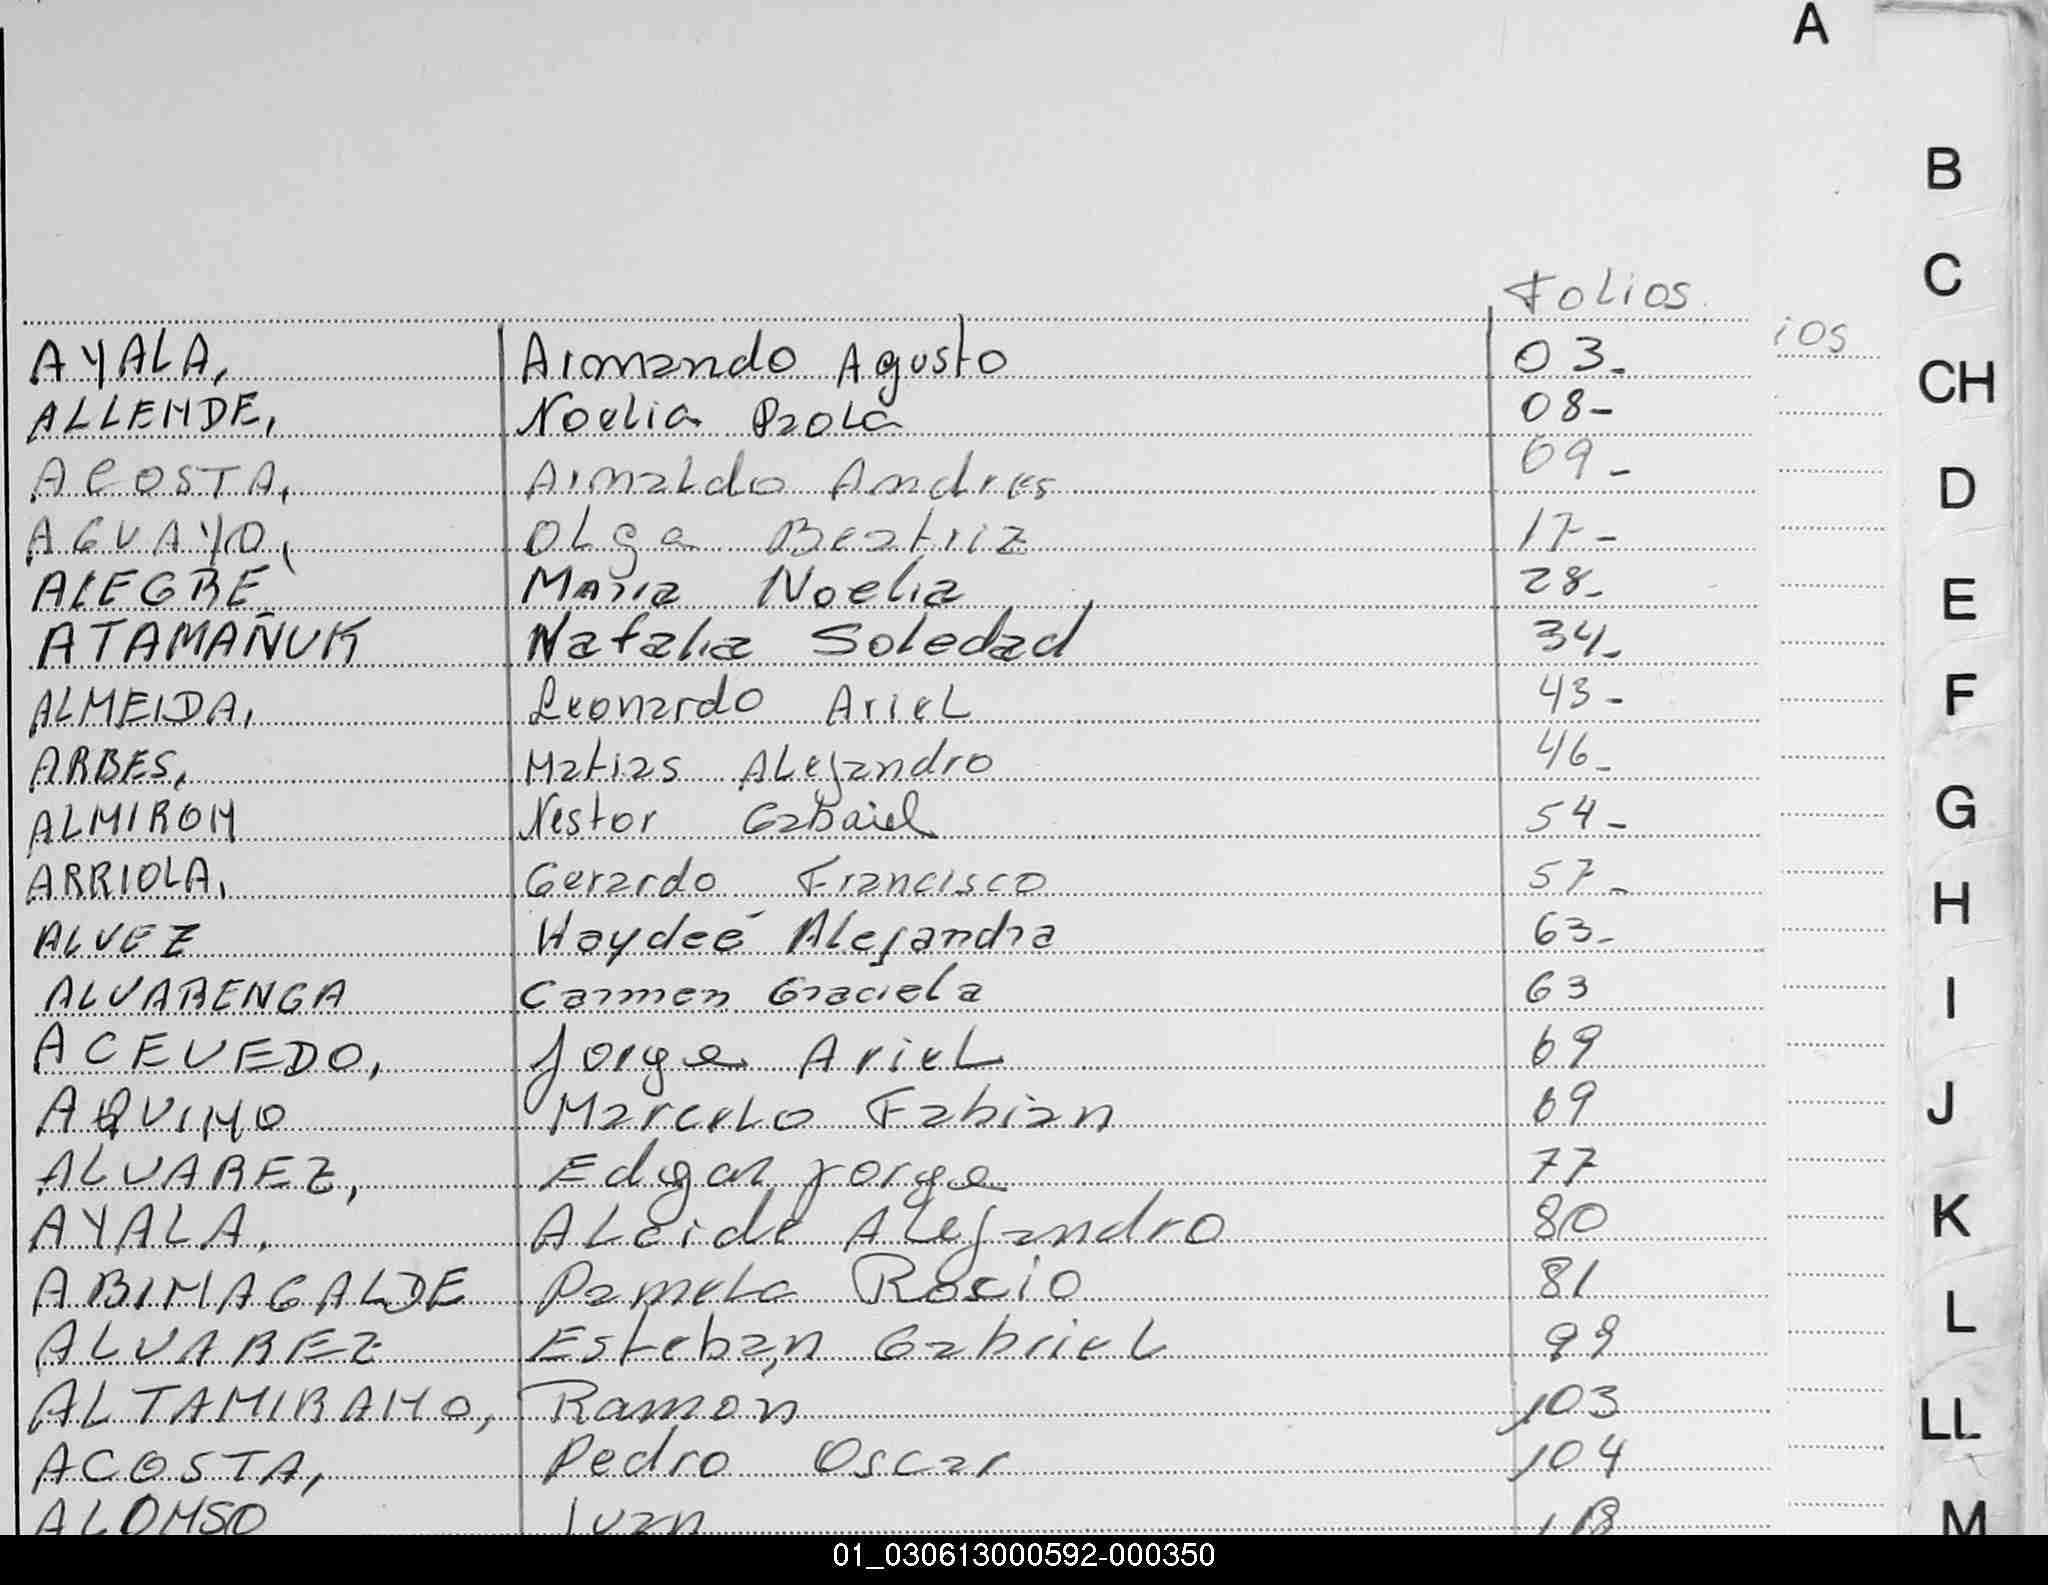 A
B
C
CH
D
E
F
G
H
I
J
K
L
LL
M
Folios
ios
AYALA, Armando Agusto 03-
ALLENDE, Noelia Paola 08-
ACOSTA, Arnaldo Andres 09-
AGUAYO, Olga Beatriz 17-
ALEGRE Maria Noelia 28-
ATAMAÑUK Natalia Soledad 34-
ALMEIDA, Leonardo Ariel 43-
ARBES, Matias Alejandro 46-
ALMIRON Nestor Gabriel 54-
ARRIOLA, Gerardo Francisco 57-
ALVEZ Haydeé Alejandra 63-
ALVARENGA Carmen Graciela 63
ACEVEDO, Jorge Ariel 69
AQUINO Marcelo Fabian 69
ALVAREZ, Edgar Jorge 77
AYALA, Alcide Alejandro 80
ABINAGALDE Pamela Rocio 81
ALVAREZ Esteban Gabriel 99
ALTAMIRANO, Ramón 103
ACOSTA, Pedro Oscar 104
ALONSO Ivan
01_030613000592-000350